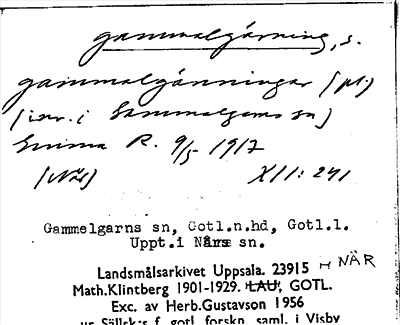 gammalgärning, s.
gammalgänningar (pl.)
[inv. i Gammalgarns sn]
Emma R. 9/5 1917
(När)
XII: 241
Gammelgarns sn, Gotl.n.hd, Gotl.l.
Uppt.i Närs sn.
Landsmålsarkivet Uppsala. 23915 ⊢ NÄR
Math.Klintberg 1901-1929. LAU, GOTL.
Exc. av Herb.Gustavson 1956
ur Sällsk:s f. gotl. forskn. saml. i Visby